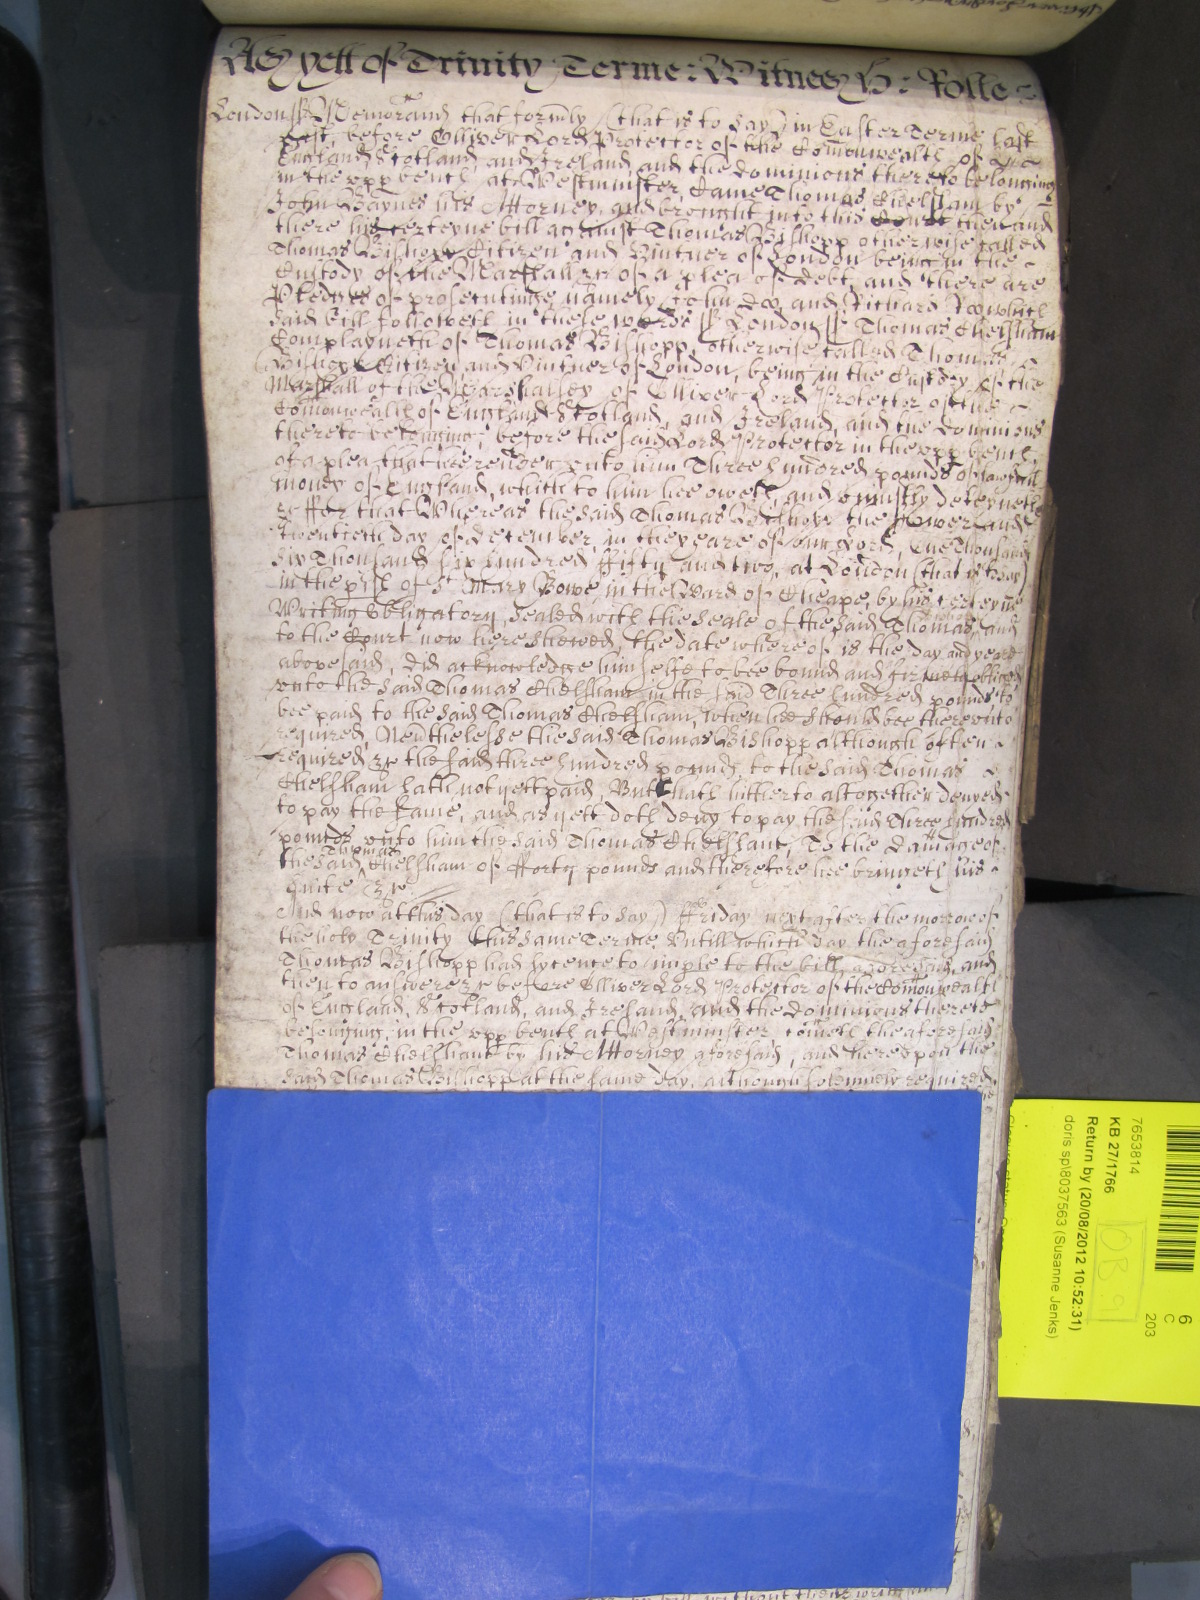 As yett of Trinity Terme: Witnes H: Rolle
London ss Memorand that formly (that is to say) in Easter Terme last
past, before Olliver Lord Protector of the Comonwealth of
England Scotland and Ireland and the dominions thereto belonging
in the upp bench at Westminster, Came Thomas Chelsham by
John Baynes his Attorney, and brought into this Court then and
there his certeyne bill against Thomas Bishopp otherwise called
Thomas Bishopp Citizen and Vintner of London being in the
Custody of the Marshall &c of a plea of debt, and there are
Pledges of prosecutinge namely John Doo and Richard Roo which
said bill followeth in these words ss London ss Thomas Chelsham
Complayneth of Thomas Bishopp, otherwise called Thomas
Bishopp Citizen and Vintner of London, being in the Custody of the
Marshall of the Marshalsey of Olliver Lord Protector of the
Comonwealth of England Scotland, and Ireland, and the dominions
thereto belonging, before the said Lord Protector in the upp bench,
of a plea that hee render unto him Three hundred pounds of lawfull
money of England, which to him hee oweth, and uniustly deteyneth
&c ffor that Whereas the said Thomas Bishopp the ffower and
twentieth day of december, in the yeare of our Lord, One Thousand
Six hundred ffifty and two, at London (that is to say)
in the pish of St Mary Bowe, in the Ward of Cheape, by his certeyne
Writing Obligatory, sealed with the seale of the said Thomas, and
to the Court now here shewed, the date whereof is the day and yeare
abovesaid, did acknowledge him selfe to bee bound and firmely obliged
unto the said Thomas Chelsham, in the said Three hundred pounds to
bee paid to the said Thomas Chelsham, when hee should bee thereunto
required, Neverthelesse the said Thomas Bishopp although often
required &c the said three hundred pounds to the said Thomas
Chelsham hath not yett paid, But hath hitherto altogether denyed
to pay the same, and as yett doth deny to pay the said Three hundred
pounds unto him the said Thomas Chelsham, To the damage of
the said Thomas Chelsham of fforty pounds and therefore hee bringeth his
suite &c
And now at this day (that is to say) ffriday next after the morrow of
the holy Trinity this same Terme Untill which day the aforesaid
Thomas Bishopp had lycence to imple to the bill aforesaid, and
then to answere &c before Olliver Lord Protector of the Comonwealth
of England, Scotland, and Ireland, and the dominions thereto
belonging, in the upp bench at Westminster cometh the aforesaid
Thomas Chelsham by his Attorney aforesaid, and hereupon the
said Thomas Bishopp at the same day, although solemnely required,
without their
7653814
KB 27/1766
Return by (20/08/2012 10:52:31)
doris sp\8037563 (Susanne Jenks)
6
C
203